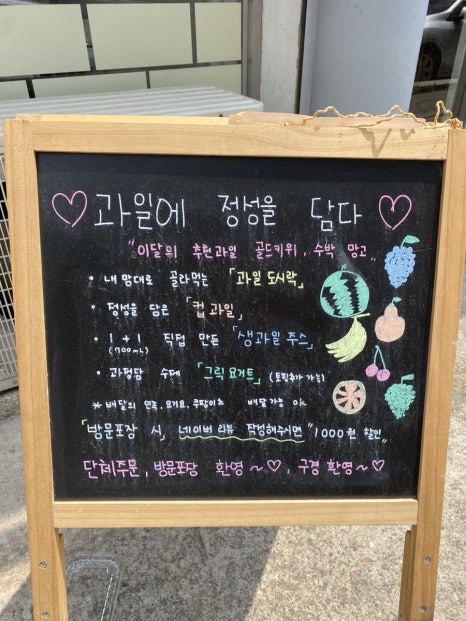 ♡ 과일에 정성을 담다 ♡
"이달의 추천과일 골드키위, 수박 망고"
• 내 맘대로 골라먹는 「과일 도시락」
• 정성을 담은 「컵과일」
• 1+1 직접 만든 「생과일 주스」
(700ml)
• 과정담 수제 「그릭 요거트」 (토핑추가 가능)
* 배달의 민족, 요기요, 쿠팡이츠 배달가능 ok
「방문포장 시」 네이버 리뷰 작성해주시면 "1000원 할인"
단체주문, 방문포장 환영~♡, 구경 환영~♡